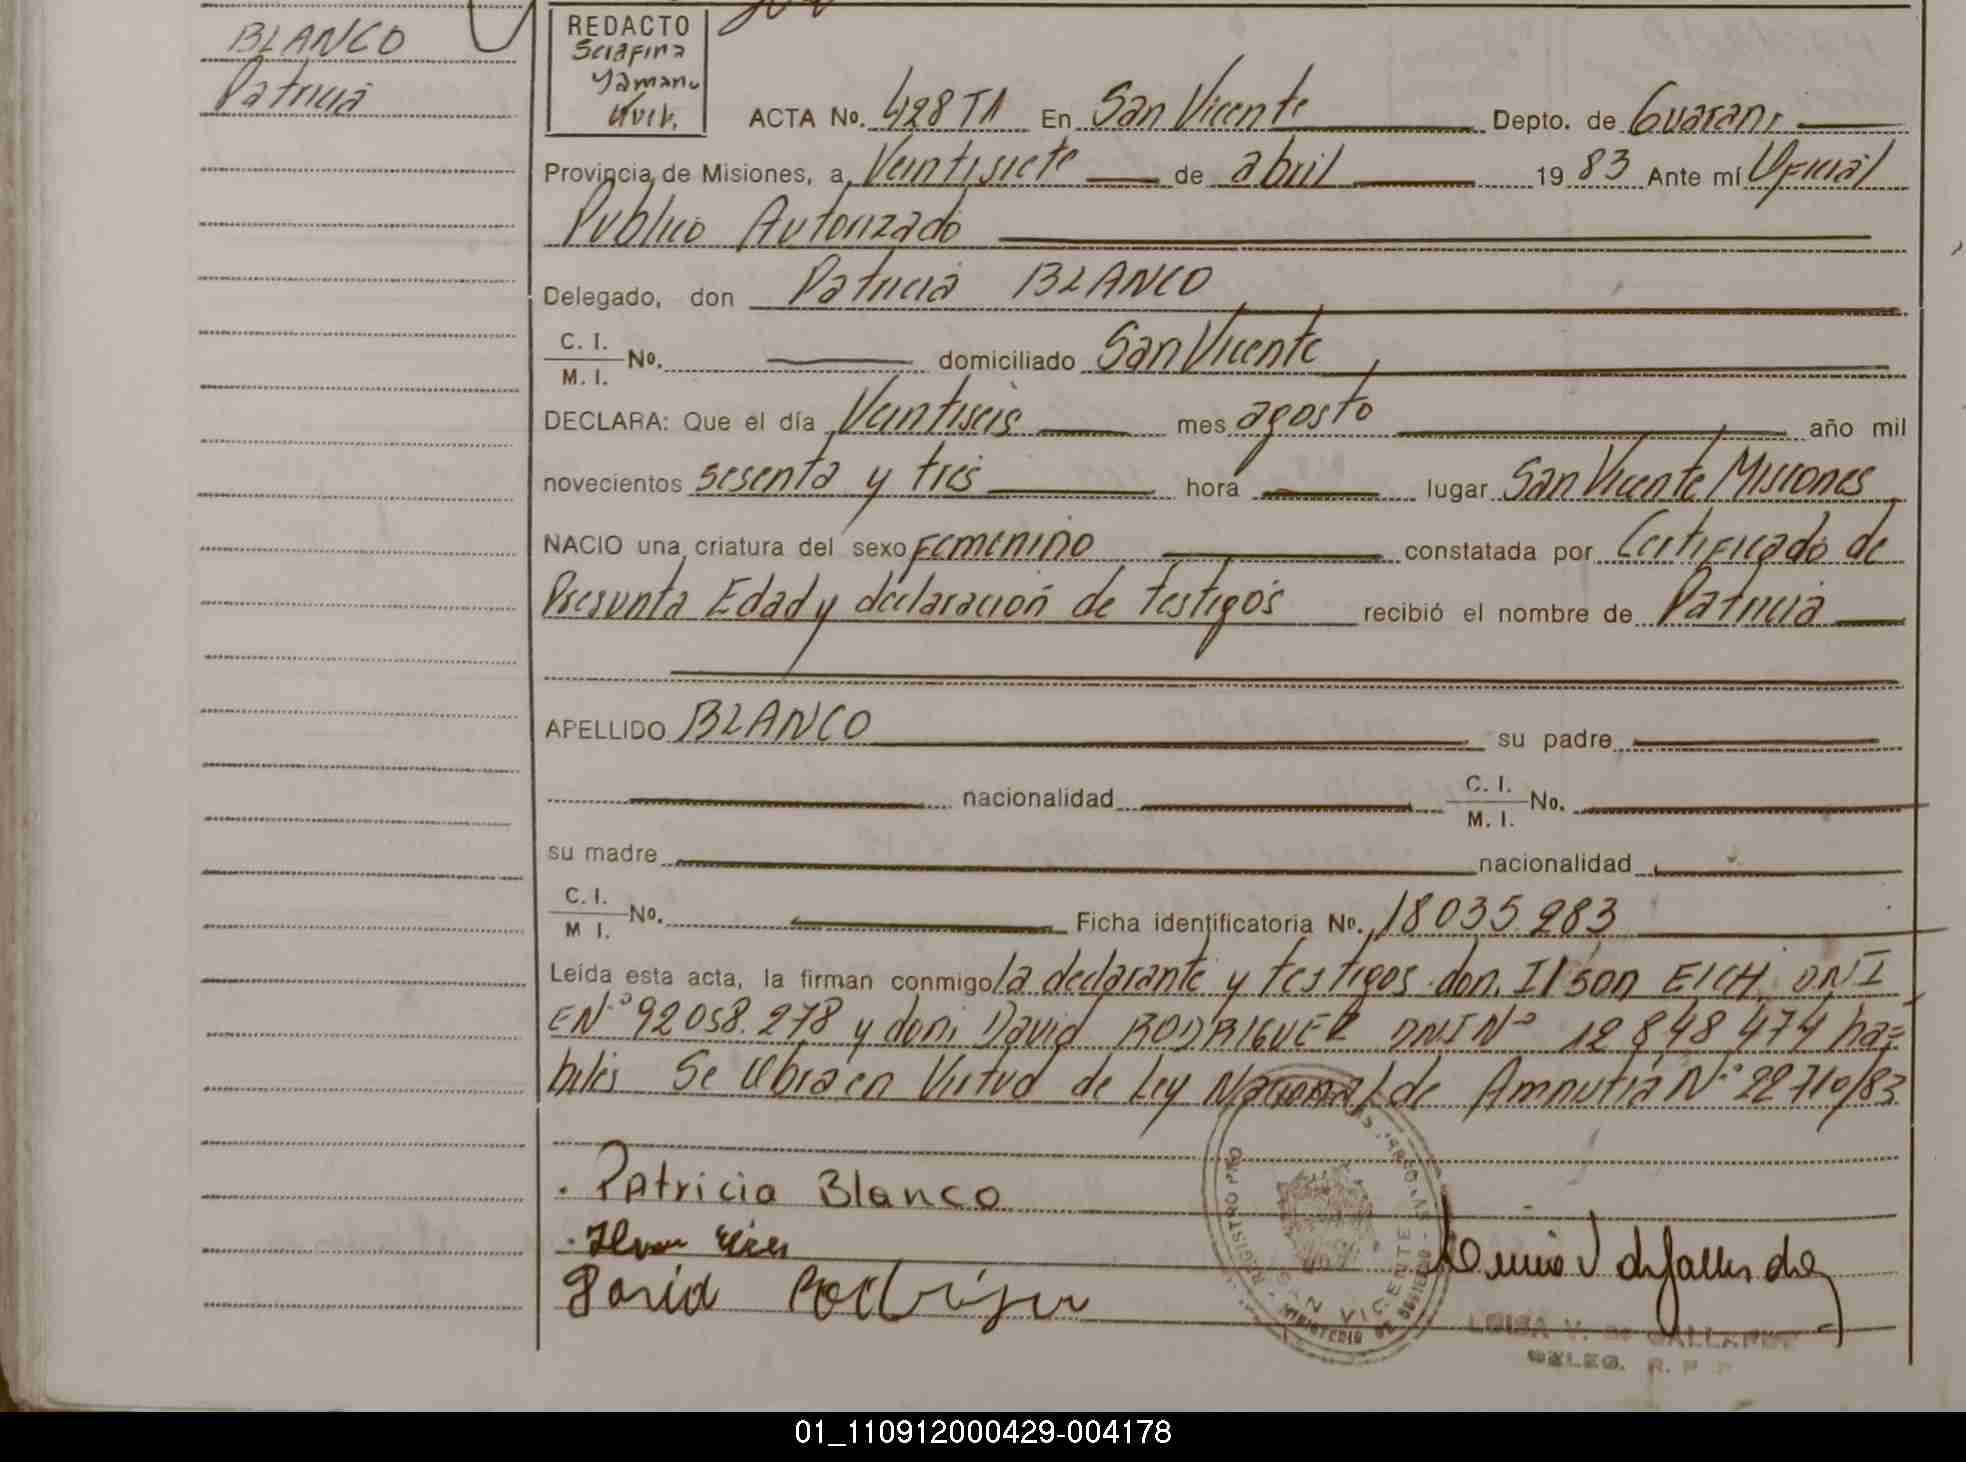 BLANCO
Patricia
REDACTO
Serafina
Yamanu
ACTA No. 428 TA En San Vicente Depto. de Guarani
Provincia de Misiones, a Veintisiete de abril 19 83 Ante mí Oficial
Publico Autorizado
Delegado, don Patricia BLANCO
C. I.
M. I. No. domiciliado San Vicente
DECLARA: Que el día Veintiseis mes agosto año mil
novecientos sesenta y tres hora lugar San Vicente, Misiones
NACIO una criatura del sexo Femenino constatada por Certificado de
Presunta Edad y declaración de testigos recibió el nombre de Patricia
APELLIDO BLANCO su padre
nacionalidad C. I.
M. I. No.
su madre nacionalidad
C. I.
M I. No. Ficha identificatoria No. 18035.283
Leída esta acta, la firman conmigo la declarante y testigos don. Ilson EICH. DNI
EN° 92058.278 y don: David RODRIGUEZ DNI N° 12848474 ha=
biles Se Labra en Virtud de Ley Nacional de Amnistia N° 22710/83
. Patricia Blanco
David Rodriguez
REGISTRO PRO
SAN VICENTE
MINISTERIO DE GOBIERNO
LUISA V. DE GALLARDO
DELEG. R. P. P
01_110912000429-004178